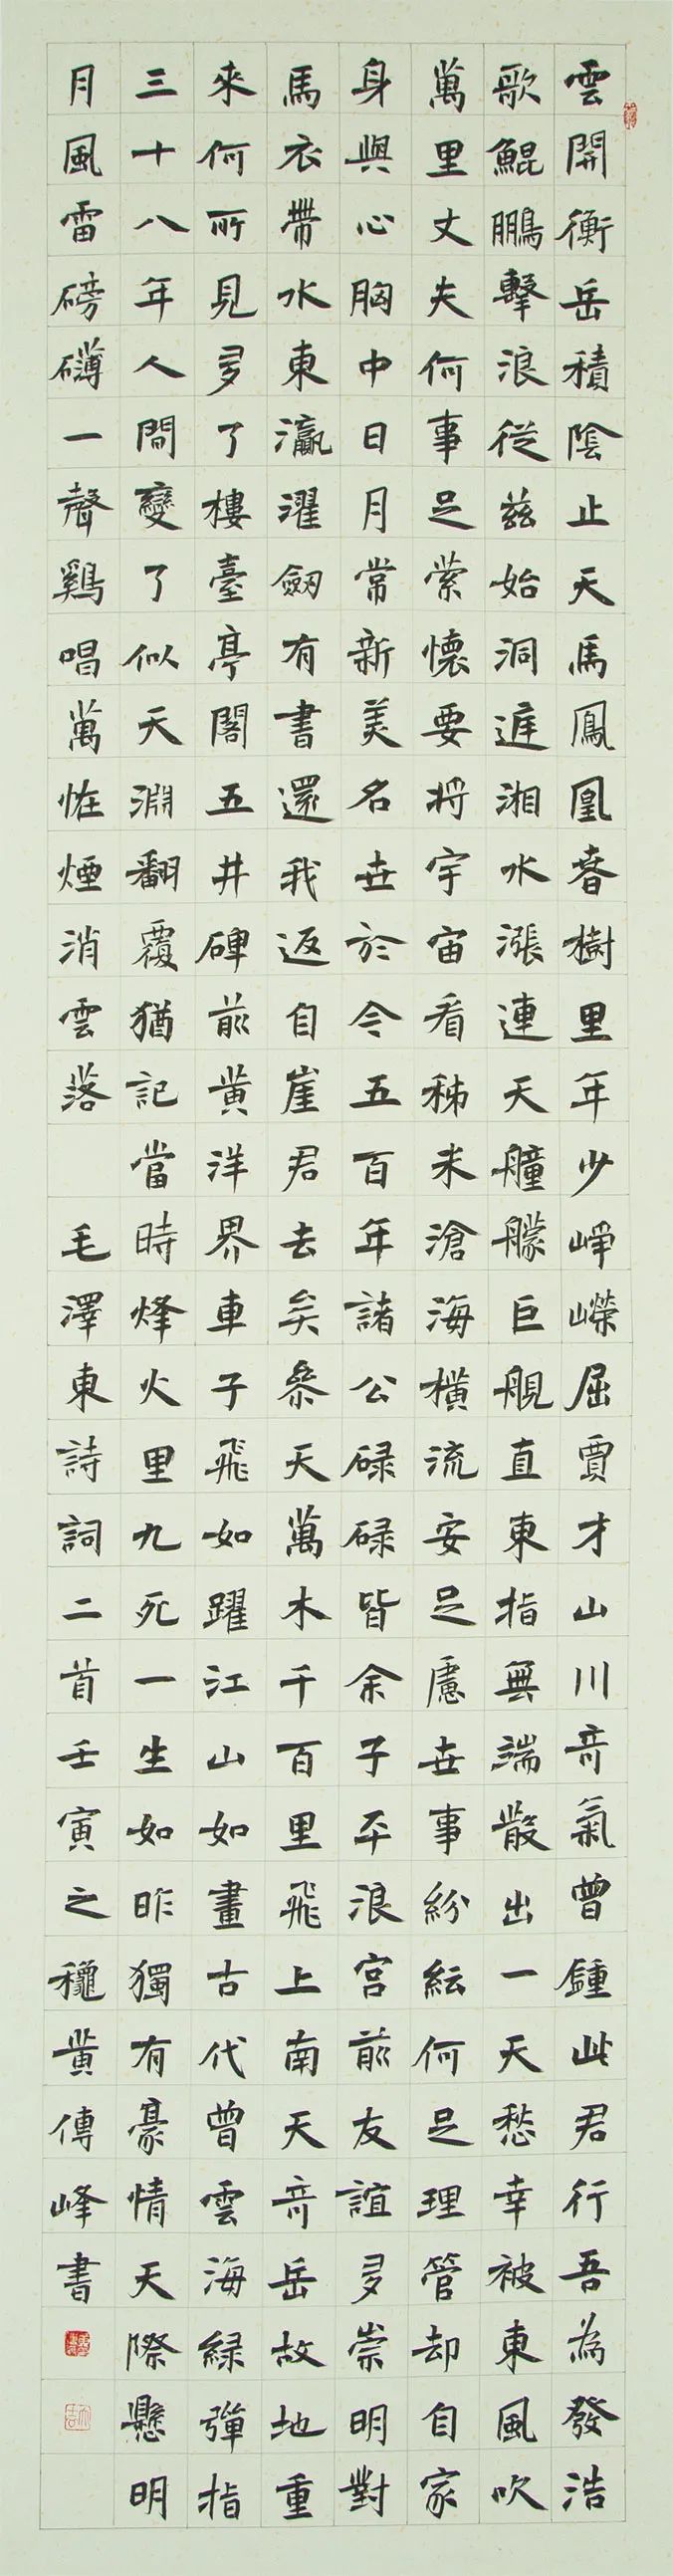 雲開衡岳積陰止天馬鳳凰春樹里年少崢嶸屈賈才山川奇氣曾鍾此君行吾為發浩
歌鯤鵬擊浪從茲始洞庭湘水漲連天艟艨巨舰直東指無端散出一天愁幸被東風吹
萬里丈夫何事足縈懷要將宇宙看稊米滄海橫流安足慮世事紛紜何足理管却自家
身與心胸中日月常新美名世於今五百年諸公碌碌皆余子平浪宮前友誼多崇明對
馬衣帶水東瀛濯劒有書還我返自崖君去矣參天萬木千百里飛上南天奇岳故地重
來何所見多了樓臺亭閣五井碑前黃洋界車子飛如躍江山如畫古代曾雲海綠彈指
三十八年人間變了似天淵翻覆猶記當時烽火里九死一生如昨獨有豪情天際懸明
月風雷磅礴一聲鷄唱萬恠煙消雲落 毛澤東詩詞二首壬寅之龝黃傳峰書